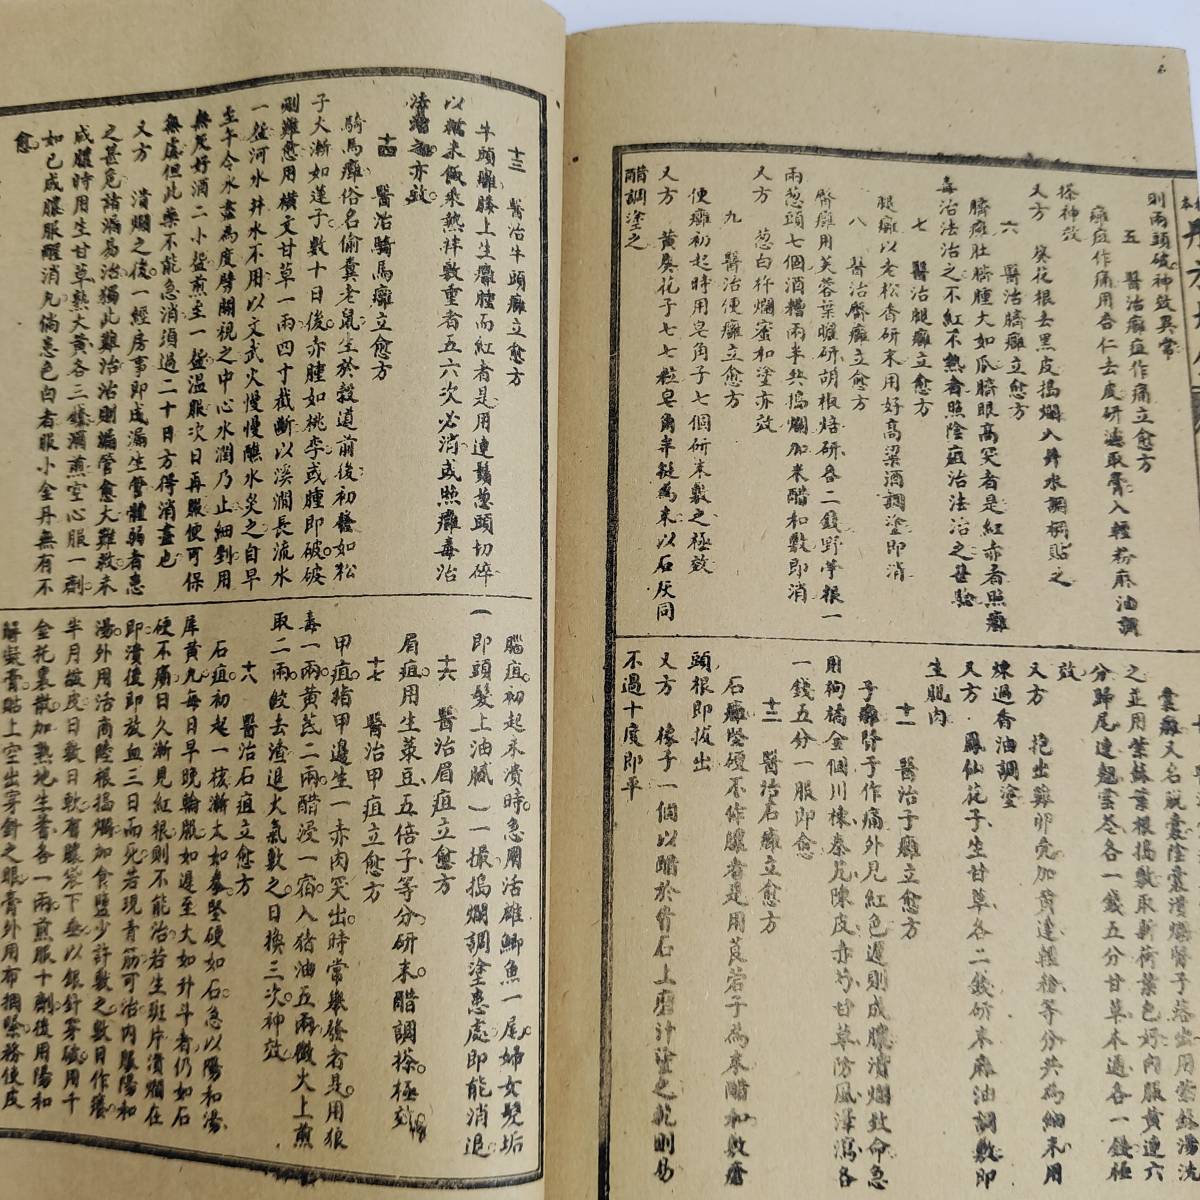 則兩頭破神效異常
五 醫治癰疽作痛立愈方
癰疽作痛用杏仁去皮研濾取膏入輕粉麻油調
搽神效
又方 葵花根去黑皮搗爛入井水調稠貼之
六 醫治臍癰立愈方
臍癰肚臍腫大如瓜臍眼高突者是紅赤者照癰
毒治法治之不紅不熱者照陰疽治法治之甚騐
七 醫治腿癰立愈方
腿癰以老松香研末用好高粱酒調塗即消
八 醫治臀癰立愈方
臀癰用芙蓉葉曬研胡椒焙研各二錢野芋根一
兩葱頭七個酒糟兩半共搗爛加米醋和敷即消
又方 葱白杵爛蜜和塗亦效
九 醫治便癰立愈方
便癰初起時用皂角子七個研末敷之極效
又方 黄葵花子七七粒皂角半挺為末以石灰同
醋調塗之
囊癰又名脫囊陰囊潰爛腎子落出用紫蘇湯洗
之並用紫蘇葉根搗敷取新荷葉包好內服黄連六
分歸尾連翹黄芩各一錢五分甘草木通各一錢極
效
又方 抱出雞卵壳加黄連輕粉等分共為細末用
煉過香油調塗
又方 鳳仙花子生甘草各二錢研末麻油調敷即
生肌肉
十一 醫治子癰立愈方
子癰腎子作痛外見紅色遲則成膿潰爛致命急
用枸橘全個川楝秦艽陳皮赤芍甘草防風澤瀉各
一錢五分一服即愈
十二 醫治石癰立愈方
石癰堅硬不作膿者是用莨菪子為末醋和敷瘡
頭根即拔出
又方 橡子一個以醋於青石上磨汁塗之乾則易
不過十度即平
十三 醫治牛頭癰立愈方
牛頭癰膝上生癰腫而紅者是用連鬚葱頭切碎
以糯米飯乘熱拌敷重者五六次必消或照癰毒治
法治之亦效
十四 醫治騎馬癰立愈方
騎馬癰俗名偷糞老鼠生於穀道前後初發如松
子大漸如蓮子數十日後赤腫如桃李或腫即破破
則難愈用橫文甘草一兩四寸截斷以溪澗長流水
一盌河水井水不用以文武火慢慢蘸水炙之自早
至午令水盡為度劈開視之中心水潤乃止細剉用
無灰好酒二小盌煎至一盌温服次日再服便可保
無虞但此藥不能急消須過二十日方得消盡也
又方 潰爛之後一經房事即成漏生管體弱者患
之甚危諸漏易治獨此難治治則編管愈大難救未
成膿時用生甘草熟大黄各三錢酒煎空心服一劑
如已成膿服醒消丸倘患色白者服小金丹無有不
愈
腦疽初起未潰時急用活雄鯽魚一尾婦女髮垢
(即頭髮上油膩)一撮搗爛調塗患處即能消退
十六 醫治眉疽立愈方
眉疽用生菉豆五倍子等分研末醋調搽極效
十七 醫治甲疽立愈方
甲疽指甲邊生一赤肉突出時常舉發者是用狼
毒一兩黄芪二兩醋浸一宿入猪油五兩微火上煎
取二兩餃去渣退火氣敷之日換三次神效
十八 醫治石疽立愈方
石疽初起一核漸大如拳堅硬如石急以陽和湯
犀黄丸每日早晚輪服如遲至大如升斗者仍如石
硬不痛日久漸見紅根則不能治若生斑片潰爛在
即潰後即放血三日而死若現青筋可治內服陽和
湯外用活商陸根搗爛加食鹽少許敷之數日作癢
半月皺皮日敷日軟有膿袋下垂以銀針穿破用千
金托裏散加熟地生蓍各一兩煎服十劑後用陽和
解凝膏貼上空出穿針之眼膏外用布捆緊務使皮